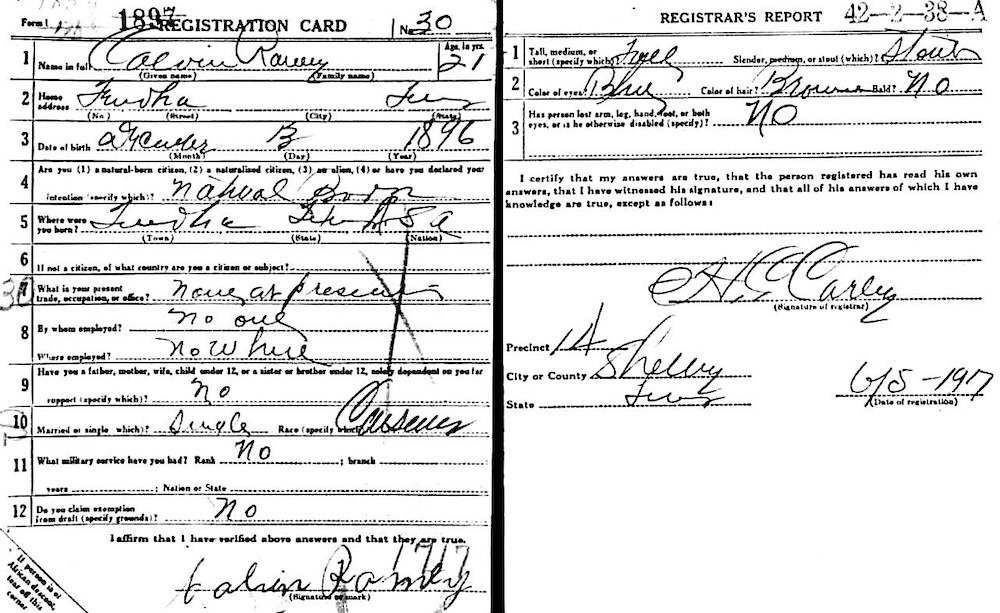 Form 1 1897 REGISTRATION CARD No. 30
1 Name in full Calvin Ramey Age, in yrs. 21
(Given name) (Family name)
2 Home address Teneha Tex
(No.) (Street) (City) (State)
3 Date of birth 1896
(Month) (Day) (Year)
Are you (1) a natural-born citizen, (2) a naturalized citizen, (3) an alien, (4) or have you declared your
4 intention (specify which)? Natural Born
5 Where were you born? Teneha Tex U S A
(Town) (State) (Nation)
6 If not a citizen, of what country are you a citizen or subject?
7 What is your present trade, occupation, or office? None at present
8 By whom employed? No one
Where employed? No Where
9 Have you a father, mother, wife, child under 12, or a sister or brother under 12, solely dependent on you for
support (specify which)? No
10 Married or single (which)? Single Race (specify which)?
11 What military service have you had? Rank No ; branch
years ; Nation or State
12 Do you claim exemption from draft (specify grounds)? No
I affirm that I have verified above answers and that they are true.
1717
Calvin Ramey
(Signature or mark)
If person is of
African descent,
tear off this
corner
REGISTRAR'S REPORT 42-2-38-A
1 Tall, medium, or short (specify which)? Tall Slender, medium, or stout (which)? Stout
2 Color of eyes? Blue Color of hair? Brown Bald? No
3 Has person lost arm, leg, hand, foot, or both eyes, or is he otherwise disabled (specify)? No
I certify that my answers are true, that the person registered has read his own
answers, that I have witnessed his signature, and that all of his answers of which I have
knowledge are true, except as follows:
(Signature of registrar)
Precinct 14
City or County Shelby
State Tex
6/5-1917
(Date of registration)